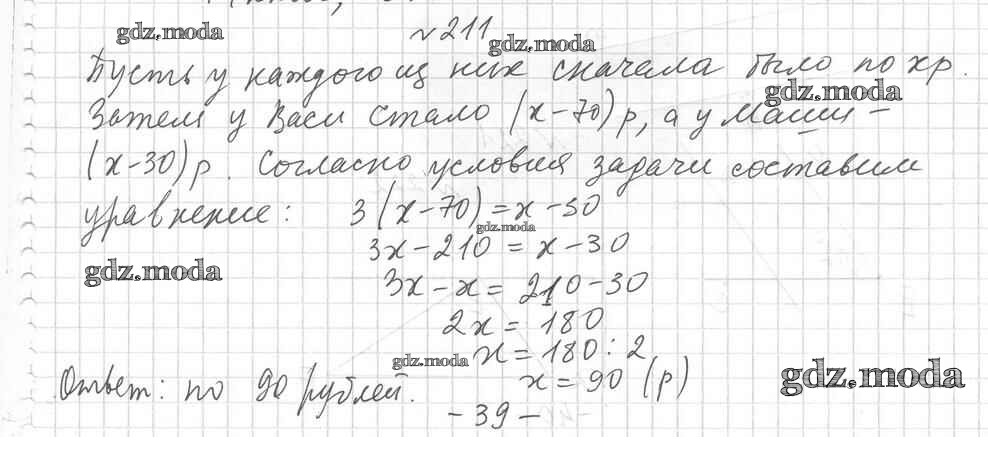 № 211
Пусть у каждого из них сначала было по x р.
Затем у Васи стало (x-70) р, а у Маши -
(x-30) р. Согласно условия задачи составим
уравнение: 3(x-70)=x-30
3x-210=x-30
3x-x=210-30
2x=180
x=180:2
x=90 (р)
Ответ: по 90 рублей.
-39-
gdz.moda
gdz.moda
gdz.moda
gdz.moda
gdz.moda
gdz.moda
gdz.moda